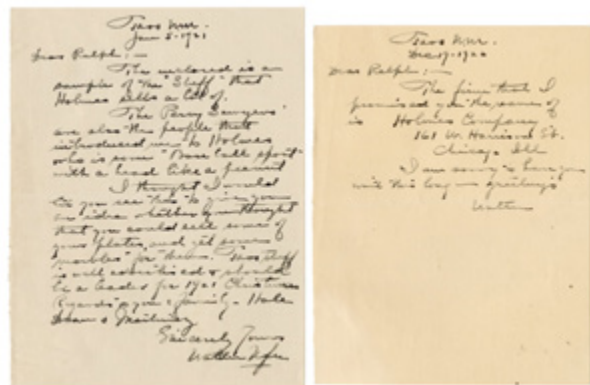 Taos N.M.
Jan 5-1921
Dear Ralph:—
The enclosed is a
sample of the "Stuff" that
Holmes sells a lot of.
The Perry Sawyers
are also the people that
introduced me to Holmes
who is some "Base ball sport"
with a head like a peanut
I thought I would
let you see this to give you
an idea whether you thought
that you could sell some of
your plates and get some
"marbles" for them. This stuff
is well advertised & should
be a leader for 1921 Christmas
Regards to you & family - Hate

Sincerely Yours
Walter Ufer
Taos N.M.
Dec 19-1920
Dear Ralph:—
The firm that I
promised you the name of
is Holmes Company
161 W. Harrison St.
Chicago Ill
I am sorry to have you
wait this long — greetings
Walter